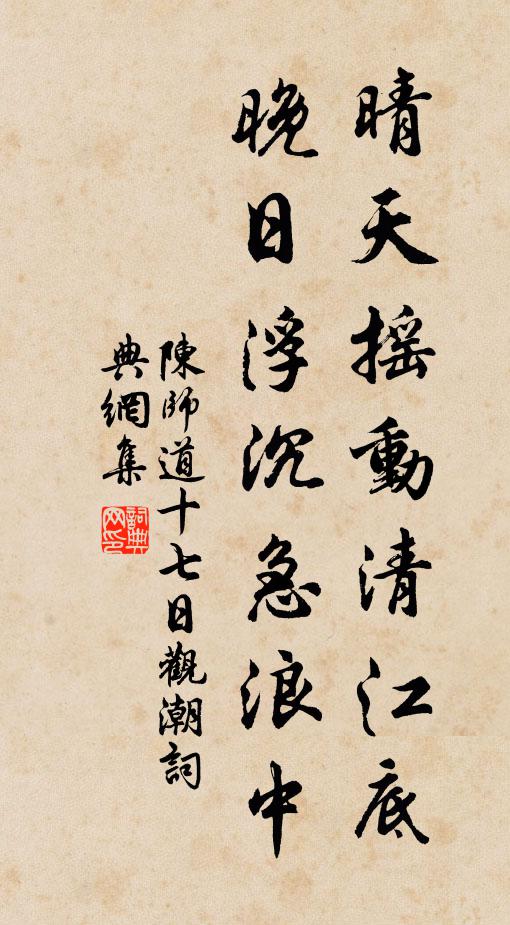 晴天摇動清江底
晚日浮沉急浪中
陳師道十七日觀潮詞
典網集
詞典網印